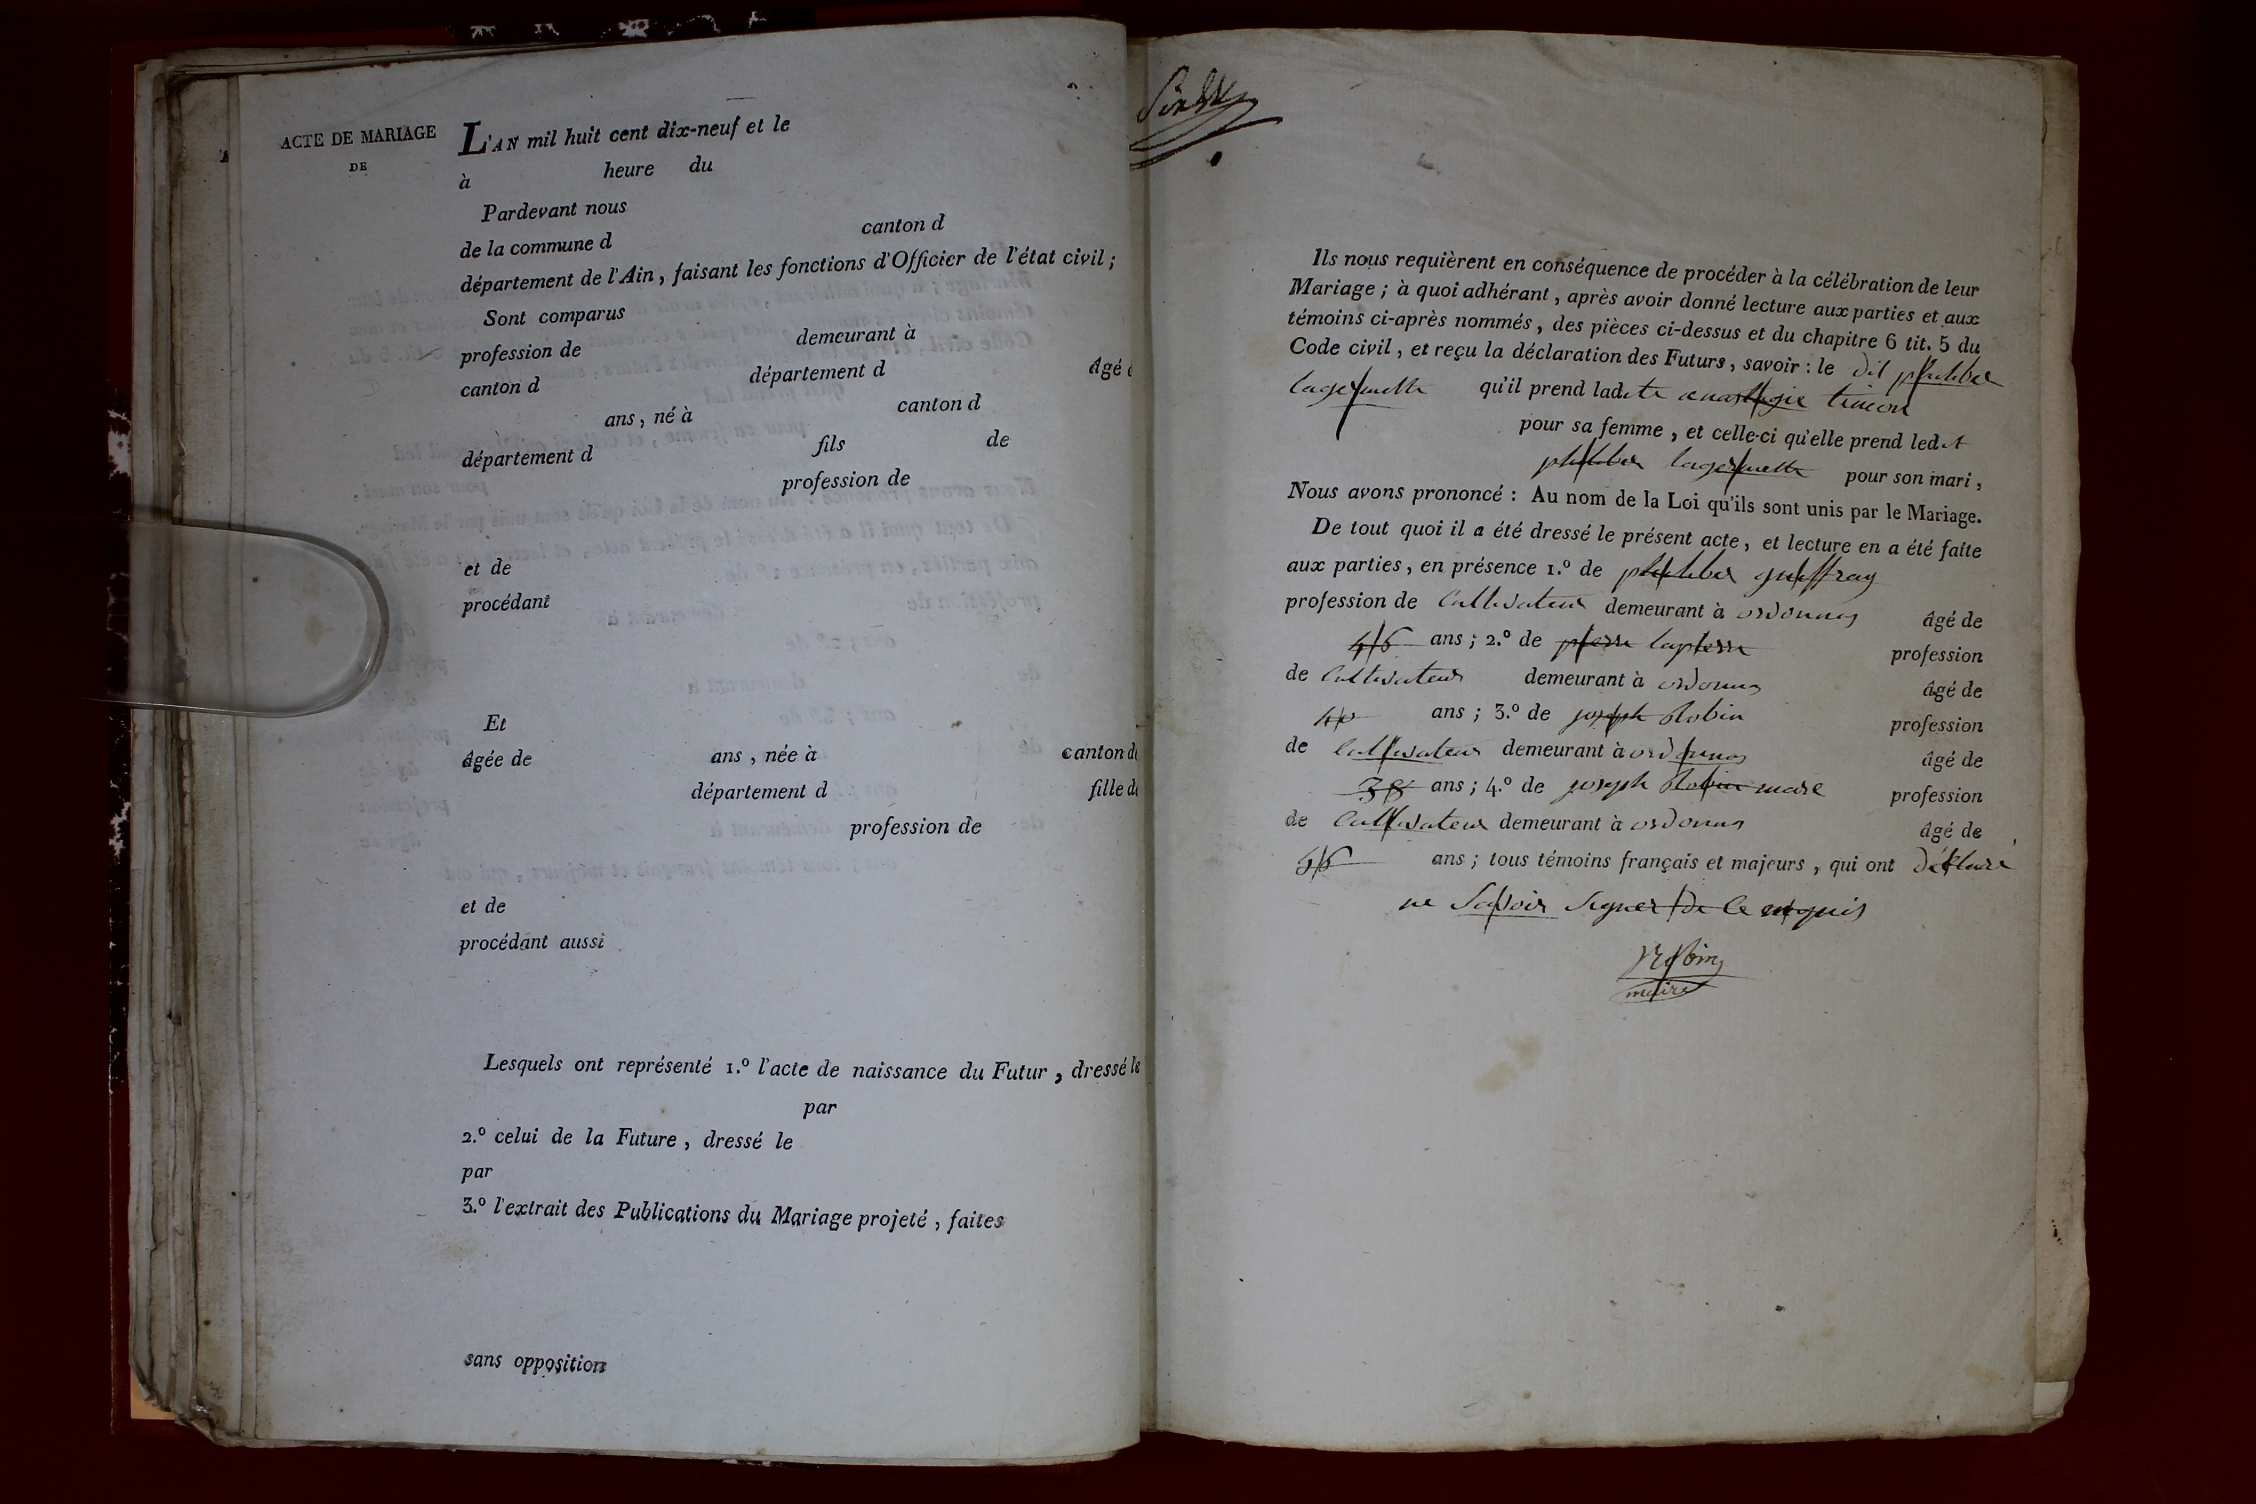 ACTE DE MARIAGE
DE
L'AN mil huit cent dix-neuf et le
à heure du
Pardevant nous
de la commune d canton d
département de l'Ain, faisant les fonctions d'Officier de l'état civil;
Sont comparus
profession de demeurant à
canton d département d âgé d
ans, né à canton d
département d fils de
profession de
et de
procédant
Et
âgée de ans, née à canton d
département d fille d
profession de
et de
procédant aussi
Lesquels ont représenté 1.º l'acte de naissance du Futur, dressé le
par
2.º celui de la Future, dressé le
par
3.º l'extrait des Publications du Mariage projeté, faites
sans opposition
Ils nous requièrent en conséquence de procéder à la célébration de leur
Mariage; à quoi adhérant, après avoir donné lecture aux parties et aux
témoins ci-après nommés, des pièces ci-dessus et du chapitre 6 tit. 5 du
Code civil, et reçu la déclaration des Futurs, savoir: le dit philiber
qu'il prend ladite anastagie timon
pour sa femme, et celle-ci qu'elle prend ledit
philiber pour son mari,
Nous avons prononcé: Au nom de la Loi qu'ils sont unis par le Mariage.
De tout quoi il a été dressé le présent acte, et lecture en a été faite
aux parties, en présence 1.º de philiber guiffray
profession de Cultivateur demeurant à ordonnas âgé de
46 ans; 2.º de pierre lapierre profession
de Cultivateur demeurant à ordonnas âgé de
40 ans; 3.º de joseph Robin profession
de Cultivateur demeurant à ordonnas âgé de
38 ans; 4.º de joseph Robin profession
de Cultivateur demeurant à ordonnas âgé de
ans; tous témoins français et majeurs, qui ont déclaré
ne Savoir Signer de ce enquis
Robin
maire